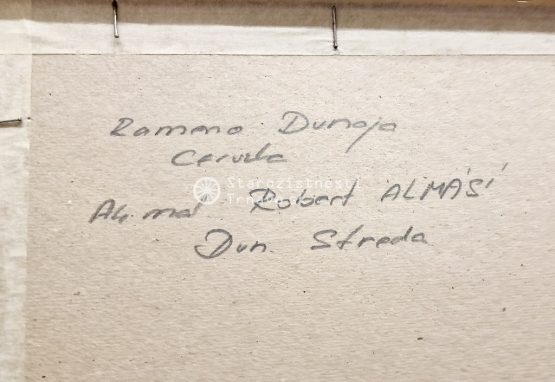 Rameno Dunaja
Ceruzka
Ak. mal Robert ALMÁSÍ
Dun. Streda
Starožitnosti